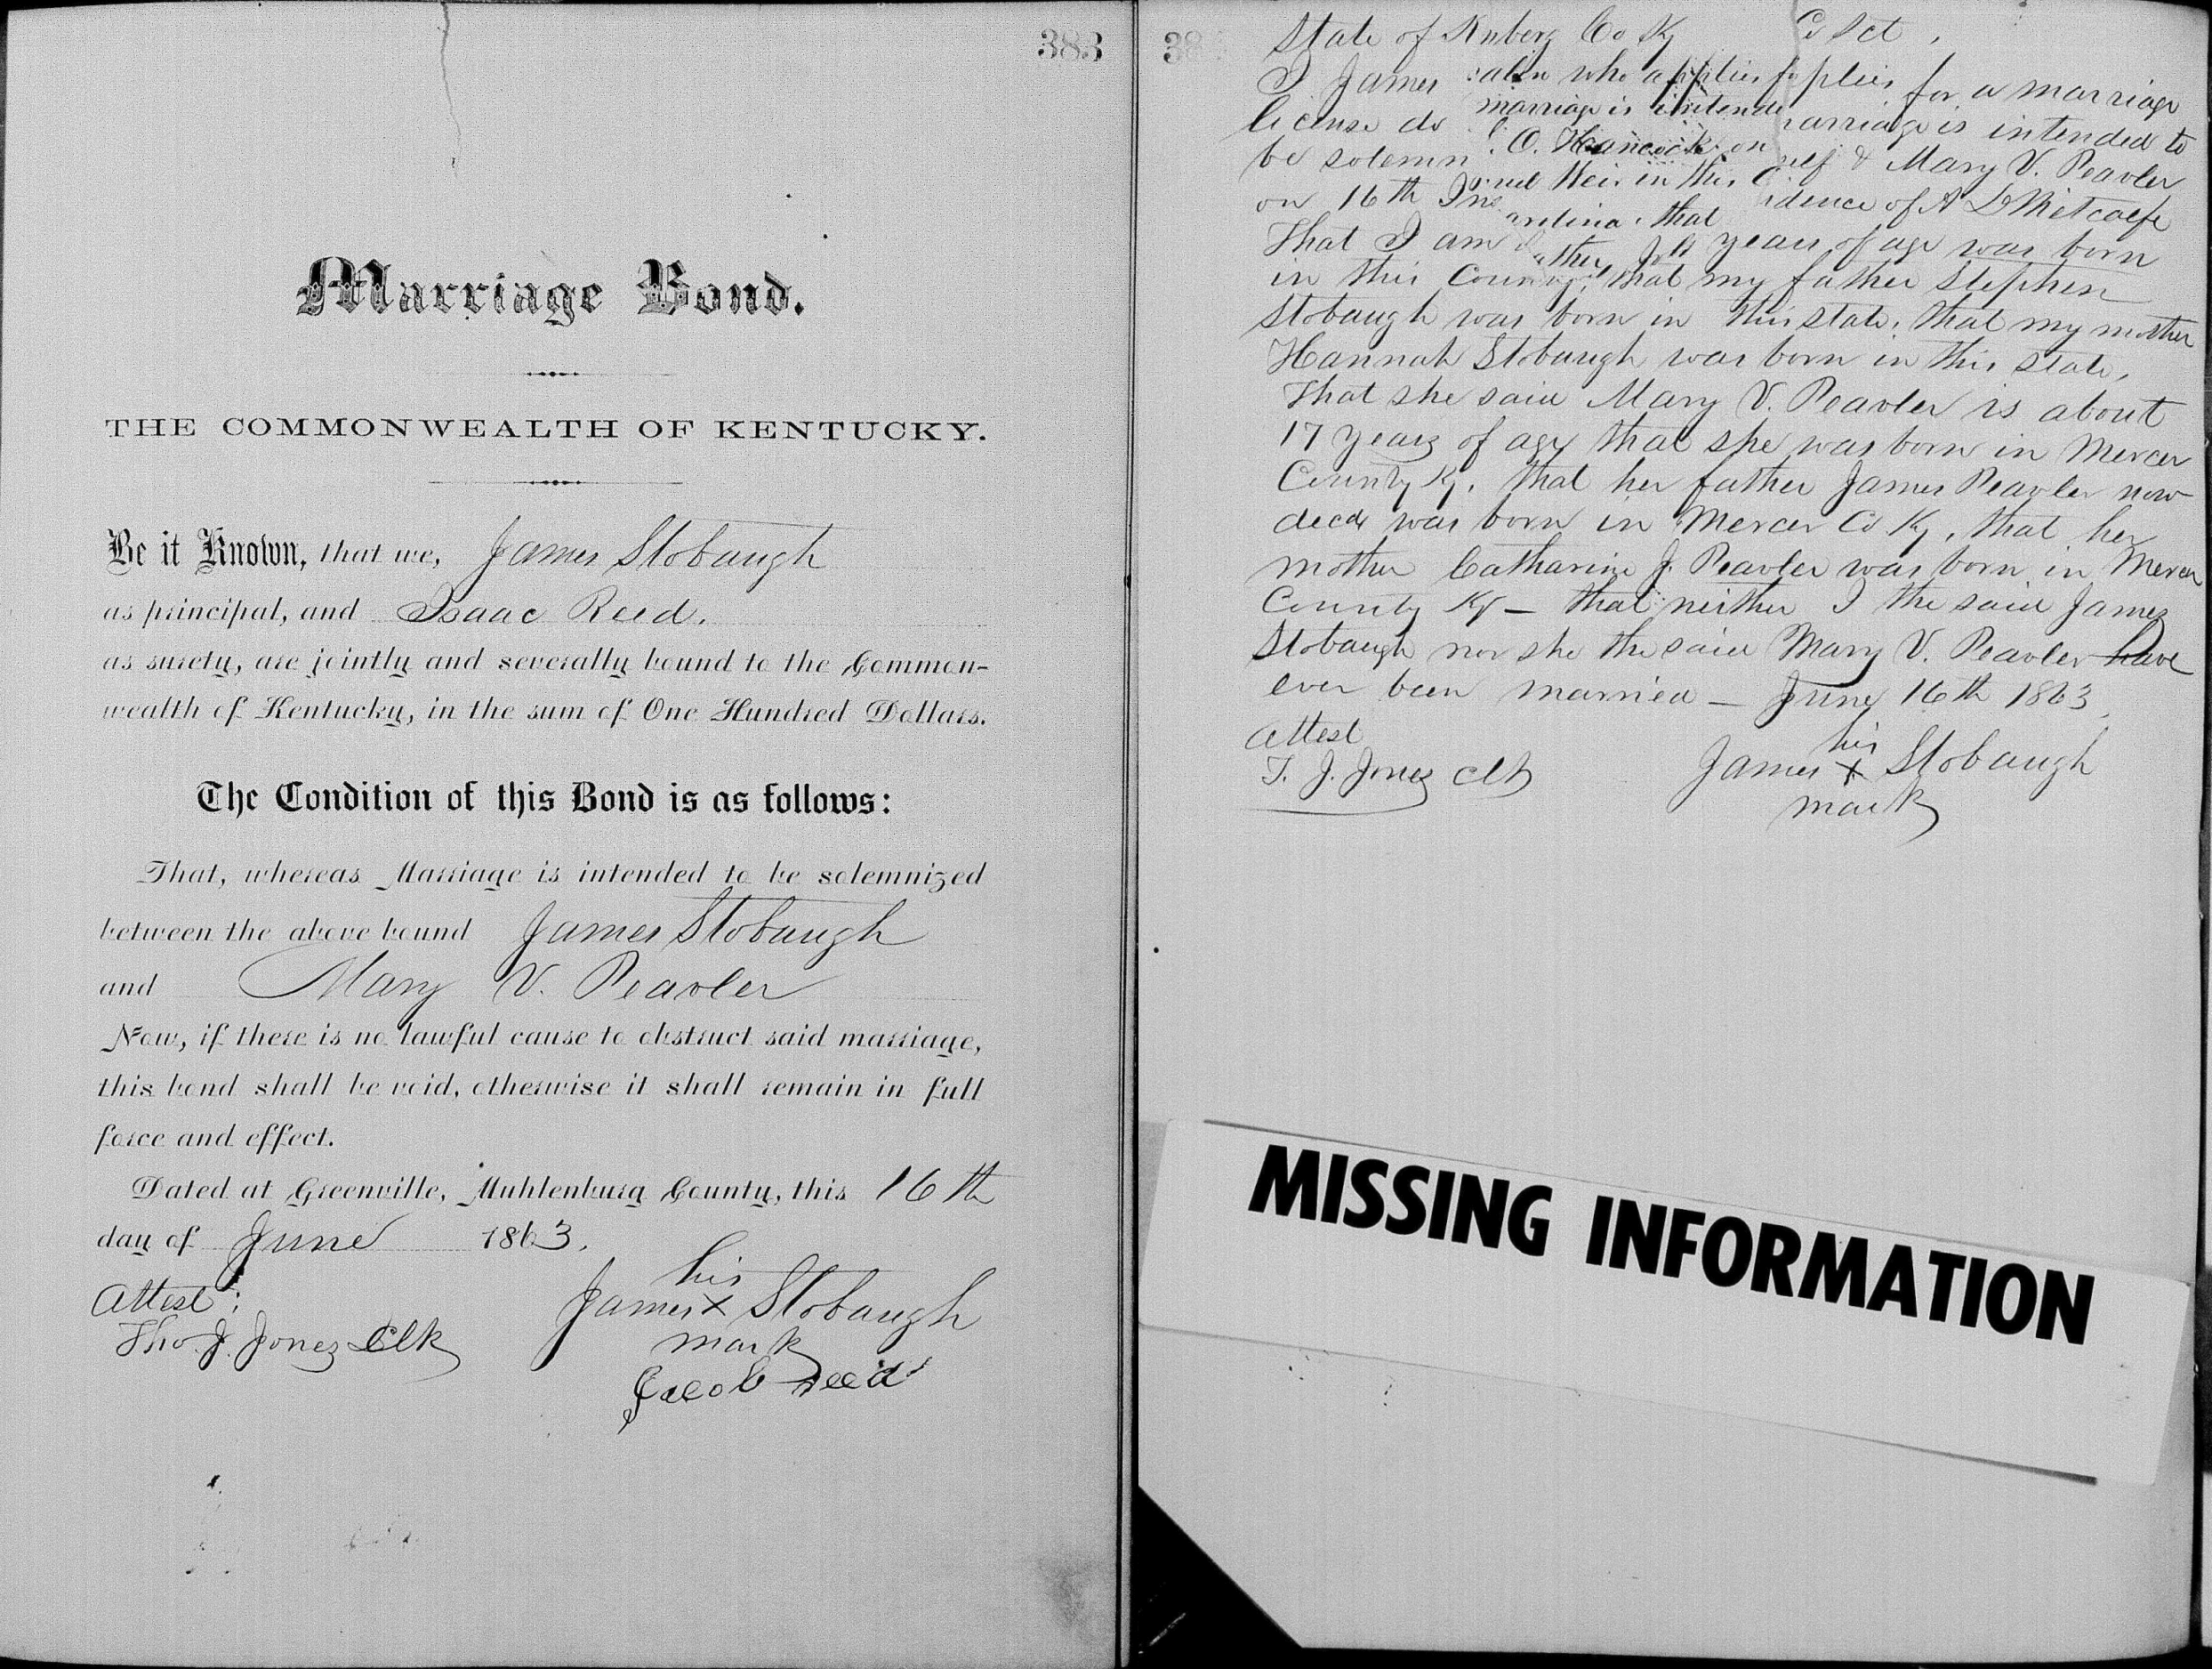 383
Marriage Bond.
THE COMMONWEALTH OF KENTUCKY.
Be it Known, that we, James Stobaugh
as principal, and Isaac Reed.
as surety, are jointly and severally bound to the Common-
wealth of Kentucky, in the sum of One Hundred Dollars.
The Condition of this Bond is as follows:
That, whereas Marriage is intended to be solemnized
between the above bound James Stobaugh
and Mary V. Peavler
Now, if there is no lawful cause to obstruct said marriage,
this bond shall be void, otherwise it shall remain in full
force and effect.
Dated at Greenville, Muhlenburg County, this 16th
day of June 1863.
Attest:
Tho. J. Jones Clk
his
James X Stobaugh
mark
Jacob Reed
38
State of nberg Co Ky Co Sct.
I James who applies plies for a marriage
license do marriage is intende arriage is intended to
be solemn . O. Hancock on self & Mary V. Peavler
on 16th Ins in this idence of A D Metcalfe
That I am that years of age was born
in this County, that my father Stephen
Stobaugh was born in this state, that my mother
Hannah Stobaugh was born in this state,
That she said Mary V. Peavler is about
17 years of age that she was born in Mercer
County Ky. that her father James Peavler now
decd was born in Mercer Co Ky, that her
mother Catharine J. Peavler was born in Mercer
County Ky — that neither I the said James
Stobaugh nor she the said Mary V. Peavler have
ever been married — June 16th 1863,
Attest
T. J. Jones Clk
his
James X Stobaugh
mark
MISSING INFORMATION